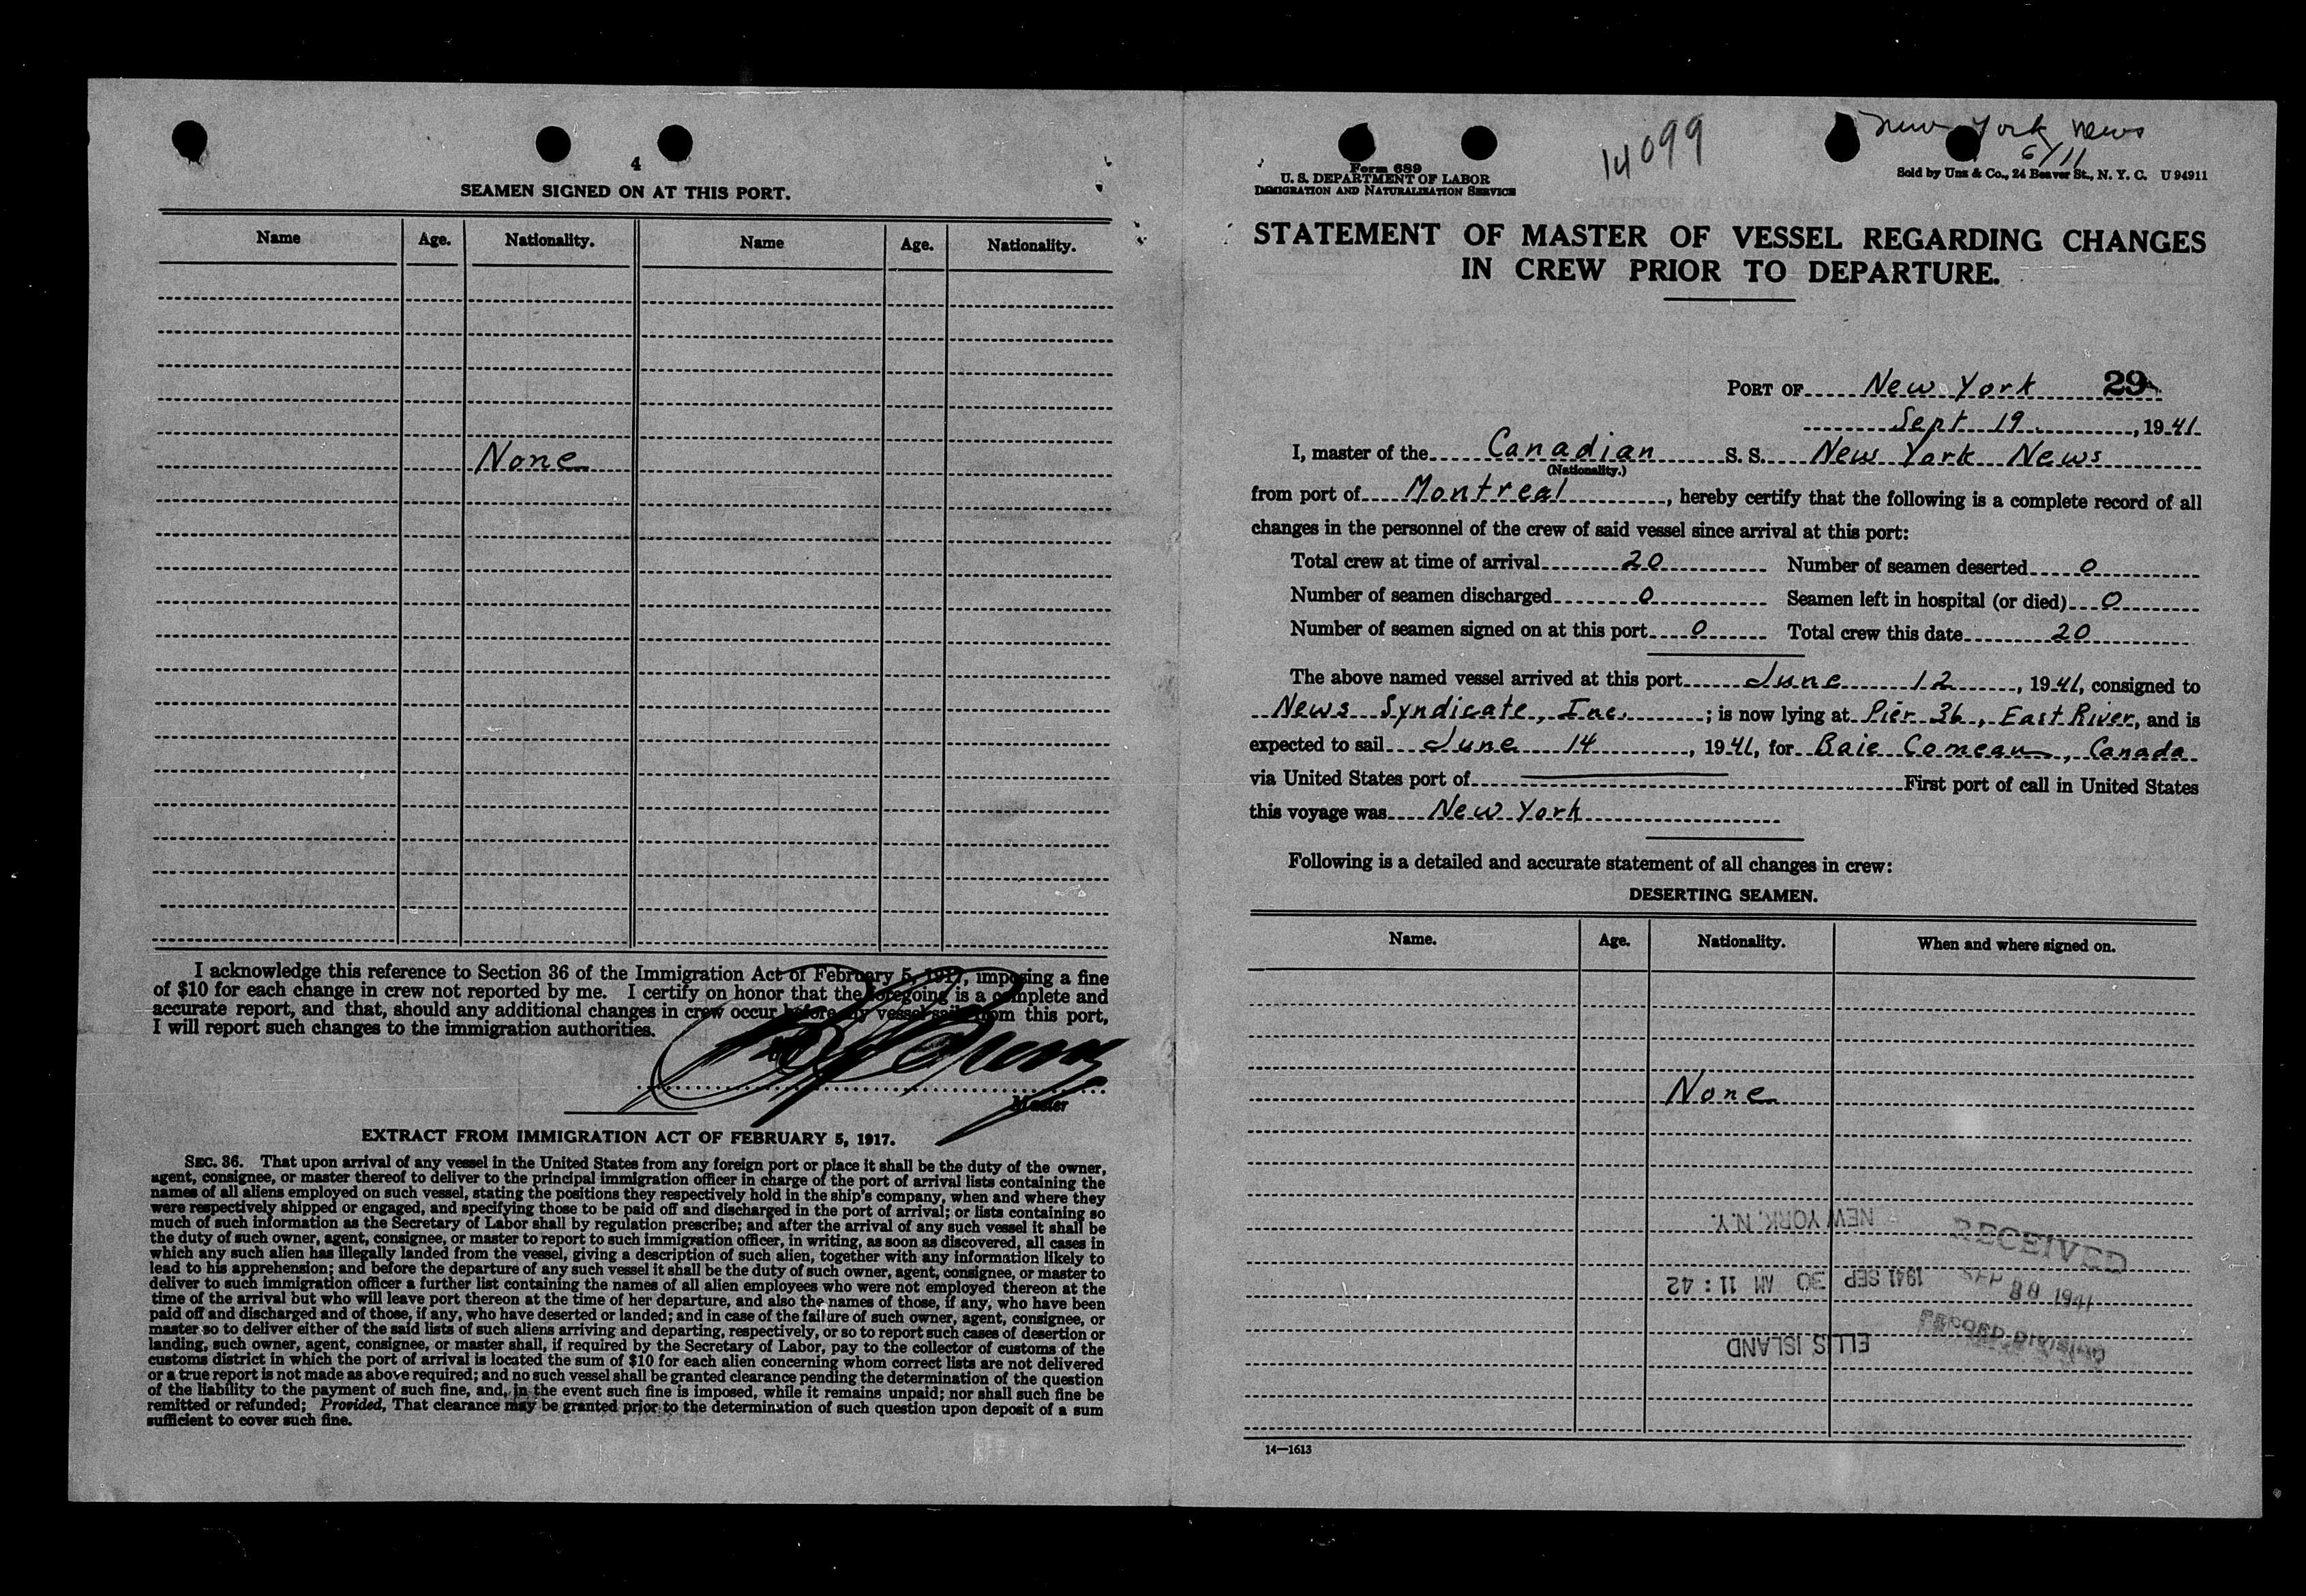 4
SEAMEN SIGNED ON AT THIS PORT.
Name Age. Nationality. Name Age. Nationality.
None
I acknowledge this reference to Section 36 of the Immigration Act of February 5, 1917, imposing a fine
of $10 for each change in crew not reported by me. I certify on honor that the foregoing is a complete and
accurate report, and that, should any additional changes in crew occur before my vessel sails from this port,
I will report such changes to the immigration authorities.
Master
EXTRACT FROM IMMIGRATION ACT OF FEBRUARY 5, 1917.
SEC. 36. That upon arrival of any vessel in the United States from any foreign port or place it shall be the duty of the owner,
agent, consignee, or master thereof to deliver to the principal immigration officer in charge of the port of arrival lists containing the
names of all aliens employed on such vessel, stating the positions they respectively hold in the ship's company, when and where they
were respectively shipped or engaged, and specifying those to be paid off and discharged in the port of arrival; or lists containing so
much of such information as the Secretary of Labor shall by regulation prescribe; and after the arrival of any such vessel it shall be
the duty of such owner, agent, consignee, or master to report to such immigration officer, in writing, as soon as discovered, all cases in
which any such alien has illegally landed from the vessel, giving a description of such alien, together with any information likely to
lead to his apprehension; and before the departure of any such vessel it shall be the duty of such owner, agent, consignee, or master to
deliver to such immigration officer a further list containing the names of all alien employees who were not employed thereon at the
time of the arrival but who will leave port thereon at the time of her departure, and also the names of those, if any, who have been
paid off and discharged and of those, if any, who have deserted or landed; and in case of the failure of such owner, agent, consignee, or
master so to deliver either of the said lists of such aliens arriving and departing, respectively, or so to report such cases of desertion or
landing, such owner, agent, consignee, or master shall, if required by the Secretary of Labor, pay to the collector of customs of the
customs district in which the port of arrival is located the sum of $10 for each alien concerning whom correct lists are not delivered
or a true report is not made as above required; and no such vessel shall be granted clearance pending the determination of the question
of the liability to the payment of such fine, and, in the event such fine is imposed, while it remains unpaid; nor shall such fine be
remitted or refunded; Provided, That clearance may be granted prior to the determination of such question upon deposit of a sum
sufficient to cover such fine.
New York News
6/11
14099
Form 689
U. S. DEPARTMENT OF LABOR
IMMIGRATION AND NATURALIZATION SERVICE
Sold by Unz & Co., 24 Beaver St., N. Y. C. U 94911
STATEMENT OF MASTER OF VESSEL REGARDING CHANGES
IN CREW PRIOR TO DEPARTURE.
PORT OF New York 29
Sept 19, 1941
I, master of the Canadian S. S. New York News
(Nationality.)
from port of Montreal, hereby certify that the following is a complete record of all
changes in the personnel of the crew of said vessel since arrival at this port:
Total crew at time of arrival 20 Number of seamen deserted 0
Number of seamen discharged 0 Seamen left in hospital (or died) 0
Number of seamen signed on at this port 0 Total crew this date 20
The above named vessel arrived at this port June 12, 1941, consigned to
News Syndicate, Inc. ; is now lying at Pier 36, East River, and is
expected to sail June 14, 1941, for Baie Comeau, Canada
via United States port of First port of call in United States
this voyage was New York
Following is a detailed and accurate statement of all changes in crew:
DESERTING SEAMEN.
Name. Age. Nationality. When and where signed on.
None
NEW YORK, N.Y.
1941 SEP 30 AM 11:42
ELLIS ISLAND
RECEIVED
SEP 30 1941
RECORD DIVISION
14—1613